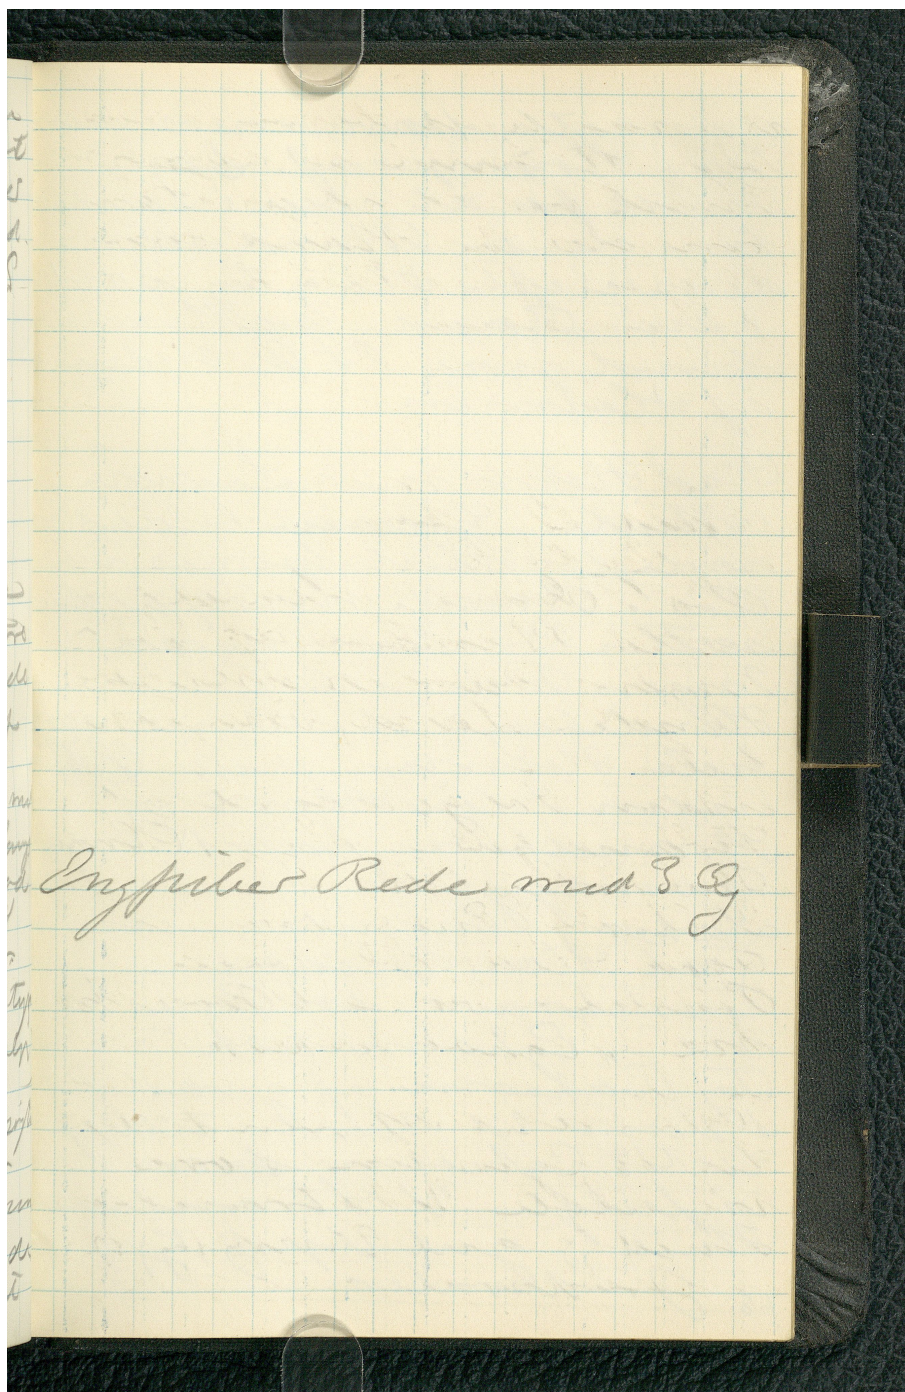 Engpiber Rede med 3 Æg